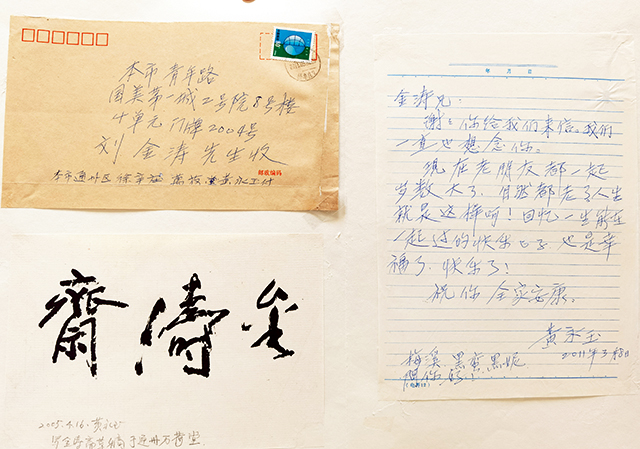 本市青年路
国美第一城二号院8号楼
4单元门牌2004号
刘金涛先生收
邮政编码
本市通州区徐辛庄万荷堂黄永玉付
金濤齋
2005.4.16.黄永玉
于通州万荷堂
年 月 日
金涛兄:
谢谢你给我们来信。我们
一直也想念你。
现在老朋友都一起
岁数大了,自然都老了,人生
就是这样呵!回忆一生能在
一起过的快乐日子,也是幸
福了,快乐了!
祝你全家安康。
黄永玉
2011年3月8日
梅溪 黑蛮 黑妮
问你好!